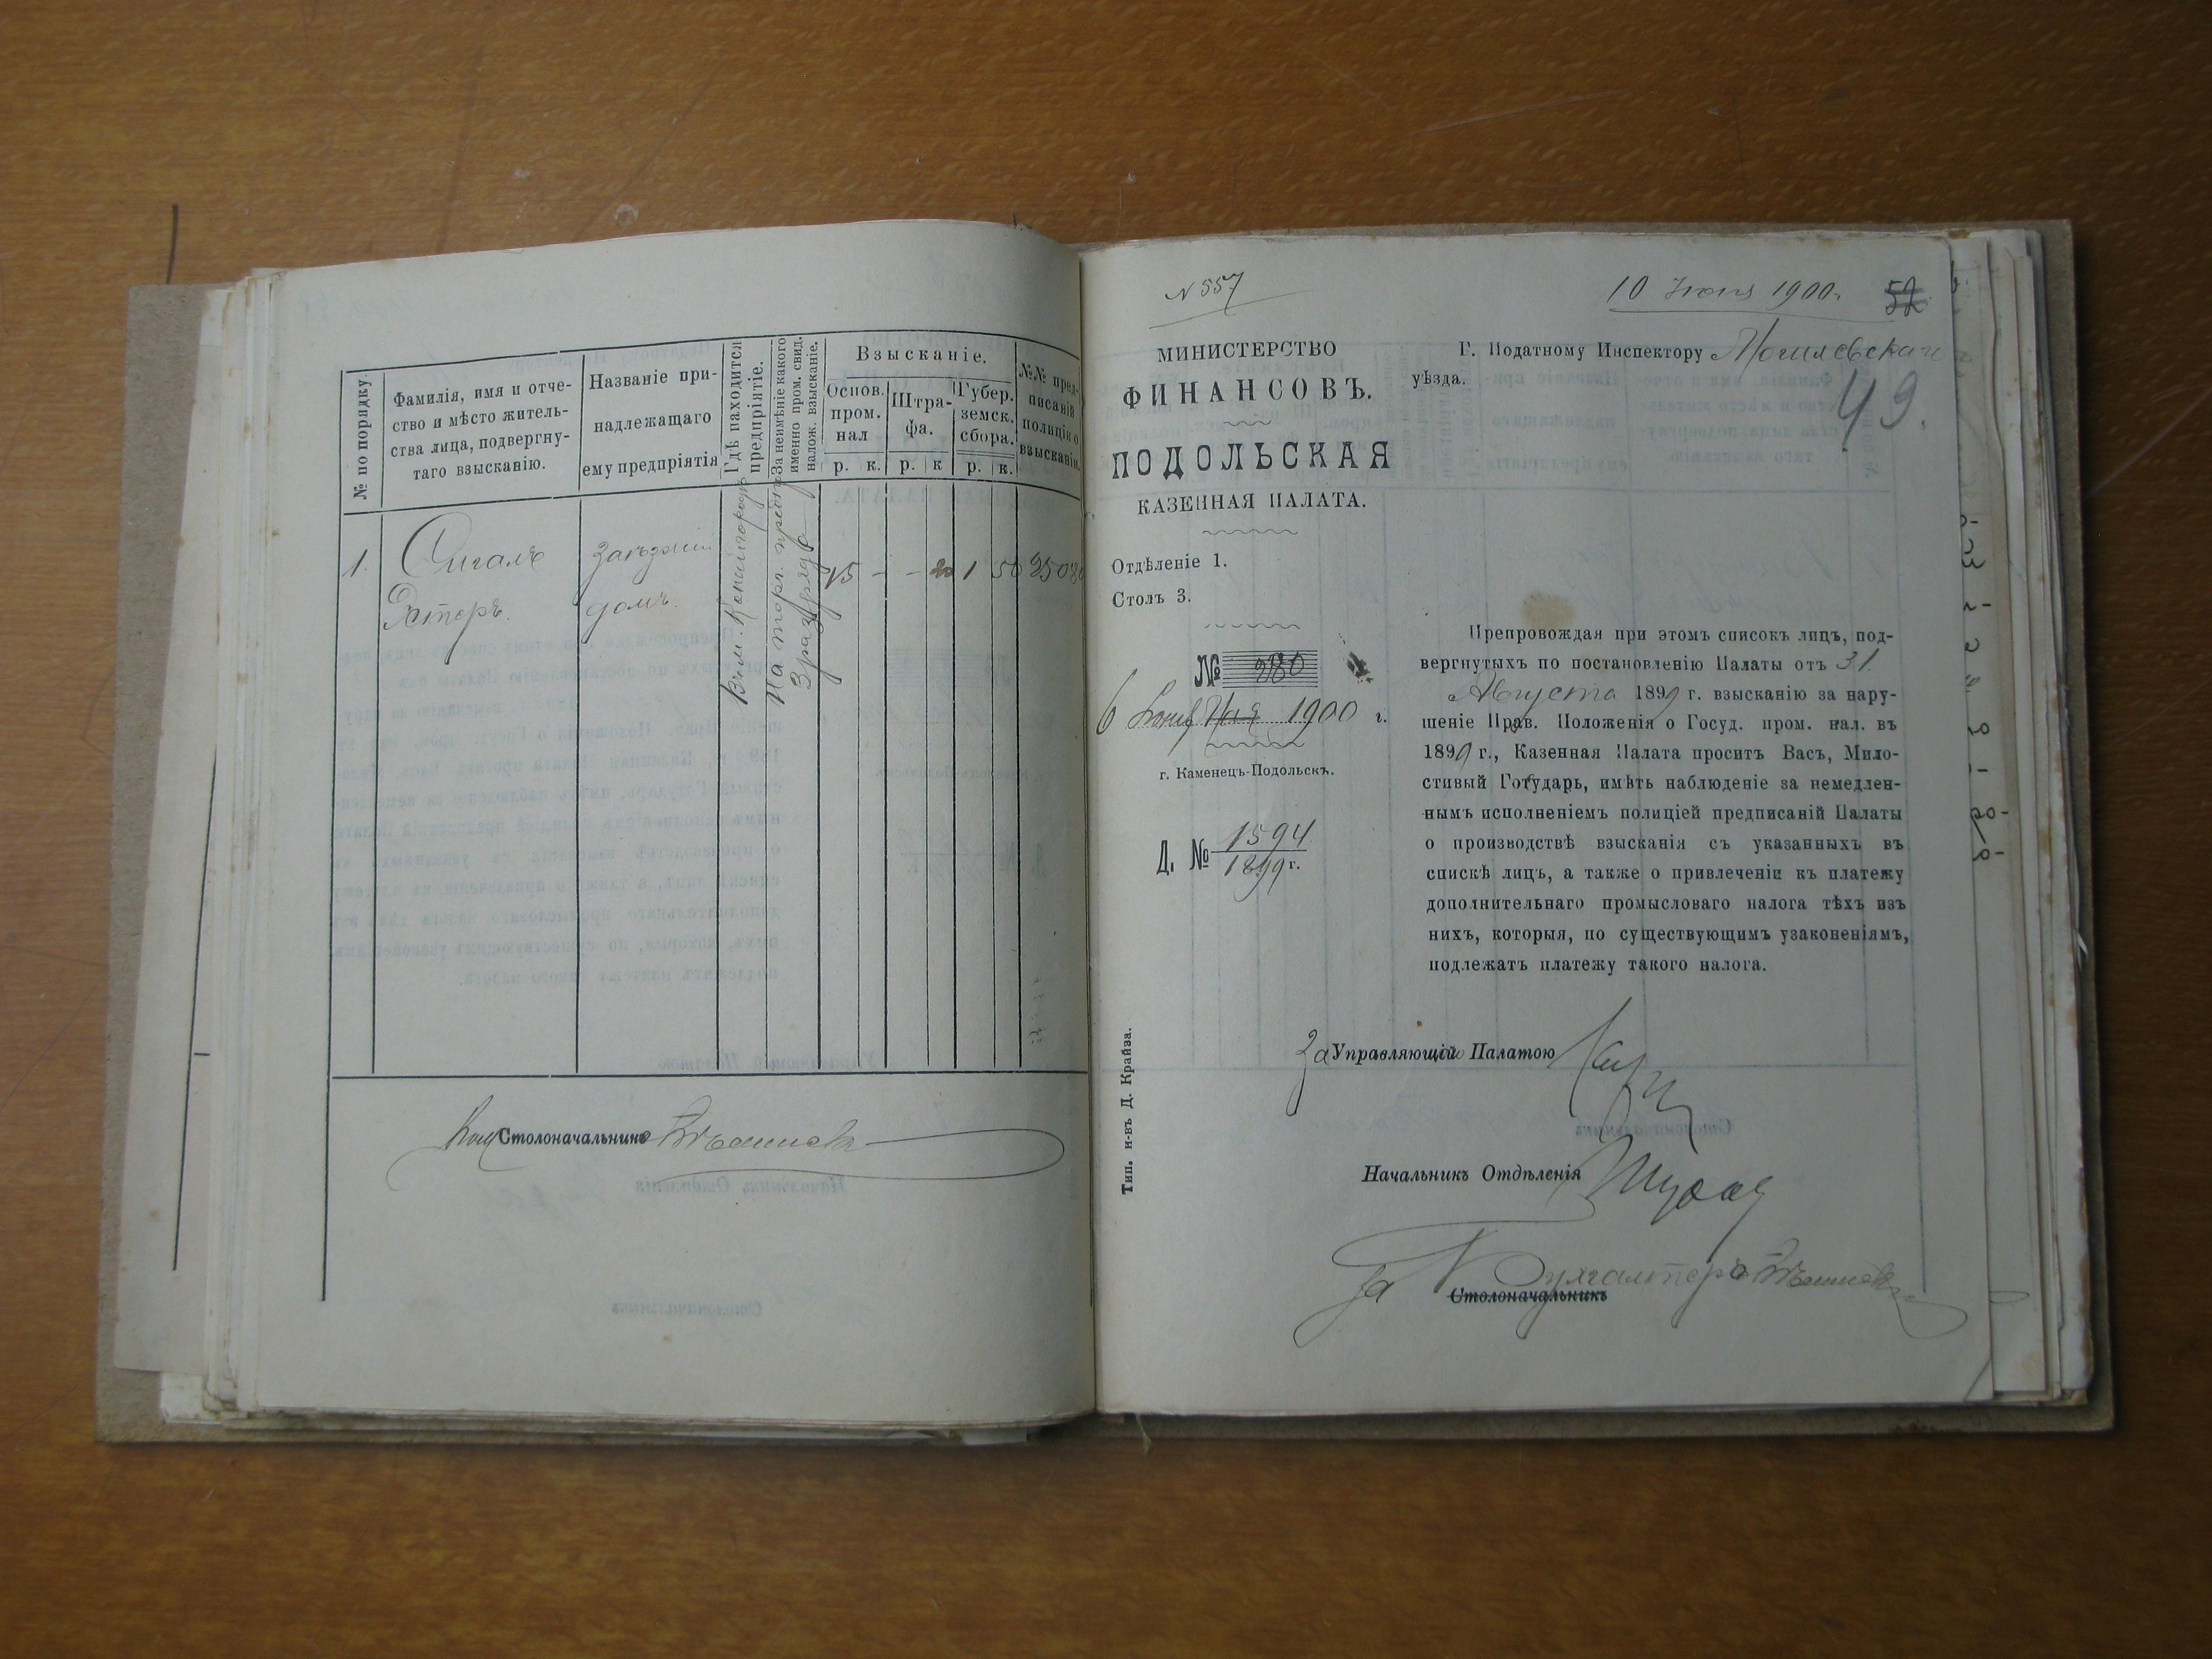 № по порядку.
Фамилія, имя и отче-
ство и мѣсто житель-
ства лица, подвергну-
таго взысканію.
Названіе при-
надлежащаго
ему предпріятія
Гдѣ находится
предпріятіе.
За неимѣніе какого
именно пром. свид.
налож. взысканіе.
Взысканіе.
Основ.
пром.
нал
р. к.
Штра-
фа.
р. к
Губер.
земск.
сбора.
р. к.
№№ пред-
писаній
полиціи о
взысканіи.
1.
Сигалъ
Эстеръ.
Заѣзжій
домъ.
В м. Копайгородѣ
На торг. предпр.
3 разряда
15 - - 20 1 50
Столоначальникъ
№ 557
10 Іюня 1900.
52
49.
МИНИСТЕРСТВО
ФИНАНСОВЪ.
ПОДОЛЬСКАЯ
КАЗЕННАЯ ПАЛАТА.
Отдѣленіе 1.
Столъ 3.
№ 280
6 Іюня Мая 1900 г.
г. Каменецъ-Подольскъ.
Д. № 1594
1899 г.
Г. Податному Инспектору Могилевскаго
уѣзда.
Препровождая при этомъ списокъ лицъ, под-
вергнутыхъ по постановленію Палаты отъ 31.
Августа 1899 г. взысканію за нару-
шеніе Прав. Положенія о Госуд. пром. нал. въ
1899 г., Казенная Палата проситъ Васъ, Мило-
стивый Государь, имѣть наблюденіе за немедлен-
нымъ исполненіемъ полиціей предписаній Палаты
о производствѣ взысканія съ указанныхъ въ
спискѣ лицъ, а также о привлеченіи къ платежу
дополнительнаго промысловаго налога тѣхъ изъ
нихъ, которыя, по существующимъ узаконеніямъ,
подлежатъ платежу такого налога.
За Управляющій Палатою
Начальникъ Отдѣленія
За Бухгалтера
Столоначальникъ
Тип. и-въ Д. Крайза.